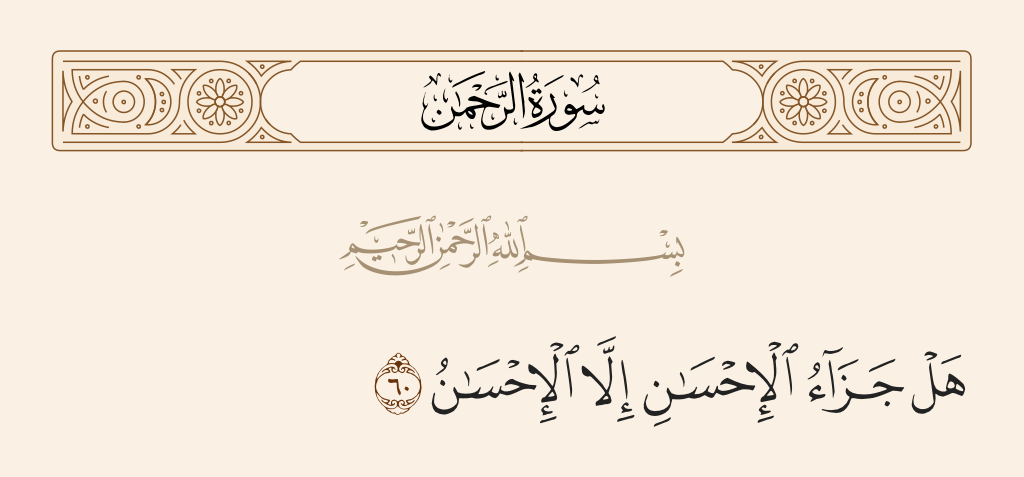 سُورَةُ الرَّحْمَٰن
بِسْمِ ٱللَّهِ ٱلرَّحْمَٰنِ ٱلرَّحِيمِ
هَلْ جَزَآءُ ٱلْإِحْسَٰنِ إِلَّا ٱلْإِحْسَٰنُ ٦٠